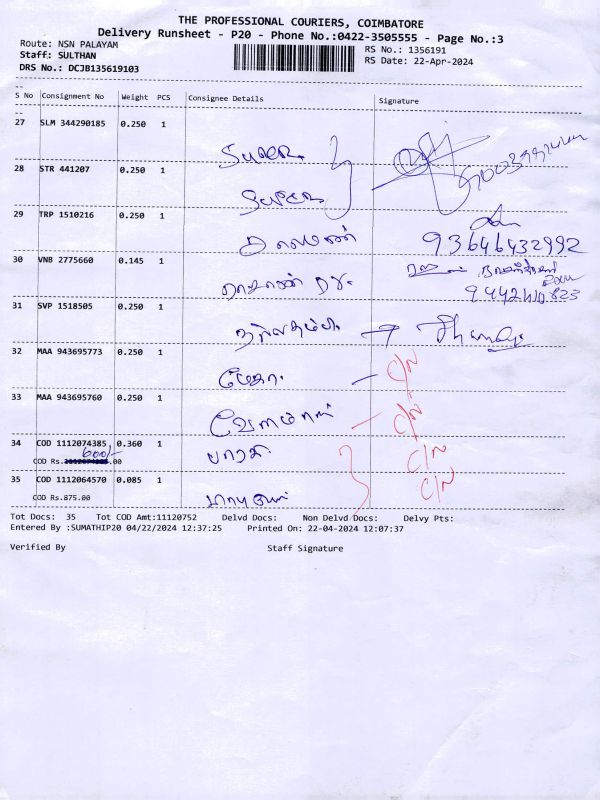 THE PROFESSIONAL COURIERS, COIMBATORE
Delivery Runsheet - P20 - Phone No.:0422-3505555 - Page No.:3
Route: NSN PALAYAM
RS No.: 1356191
Staff: SULTHAN
RS Date: 22-Apr-2024
DRS No.: DCJB135619103
S No Consignment No Weight PCS Consignee Details Signature
27 SLM 344290185 0.250 1
Super
28 STR 441207 0.250 1
Super
29 TRP 1510216 0.250 1
93646432992
30 VNB 2775660 0.145 1
31 SVP 1518505 0.250 1
32 MAA 943695773 0.250 1
C/N
33 MAA 943695760 0.250 1
C/N
34 COD 1112074385 0.360 1
600/-
COD Rs. .00
பாரதி
C/N
35 COD 1112064570 0.085 1
C/N
COD Rs.875.00
Tot Docs: 35 Tot COD Amt:11120752 Delvd Docs: Non Delvd Docs: Delvy Pts:
Entered By :SUMATHIP20 04/22/2024 12:37:25 Printed On: 22-04-2024 12:07:37
Verified By Staff Signature